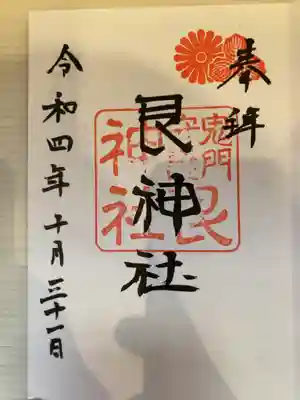 奉拝
艮神社
鬼門
艮
神社
令和四年十月三十一日